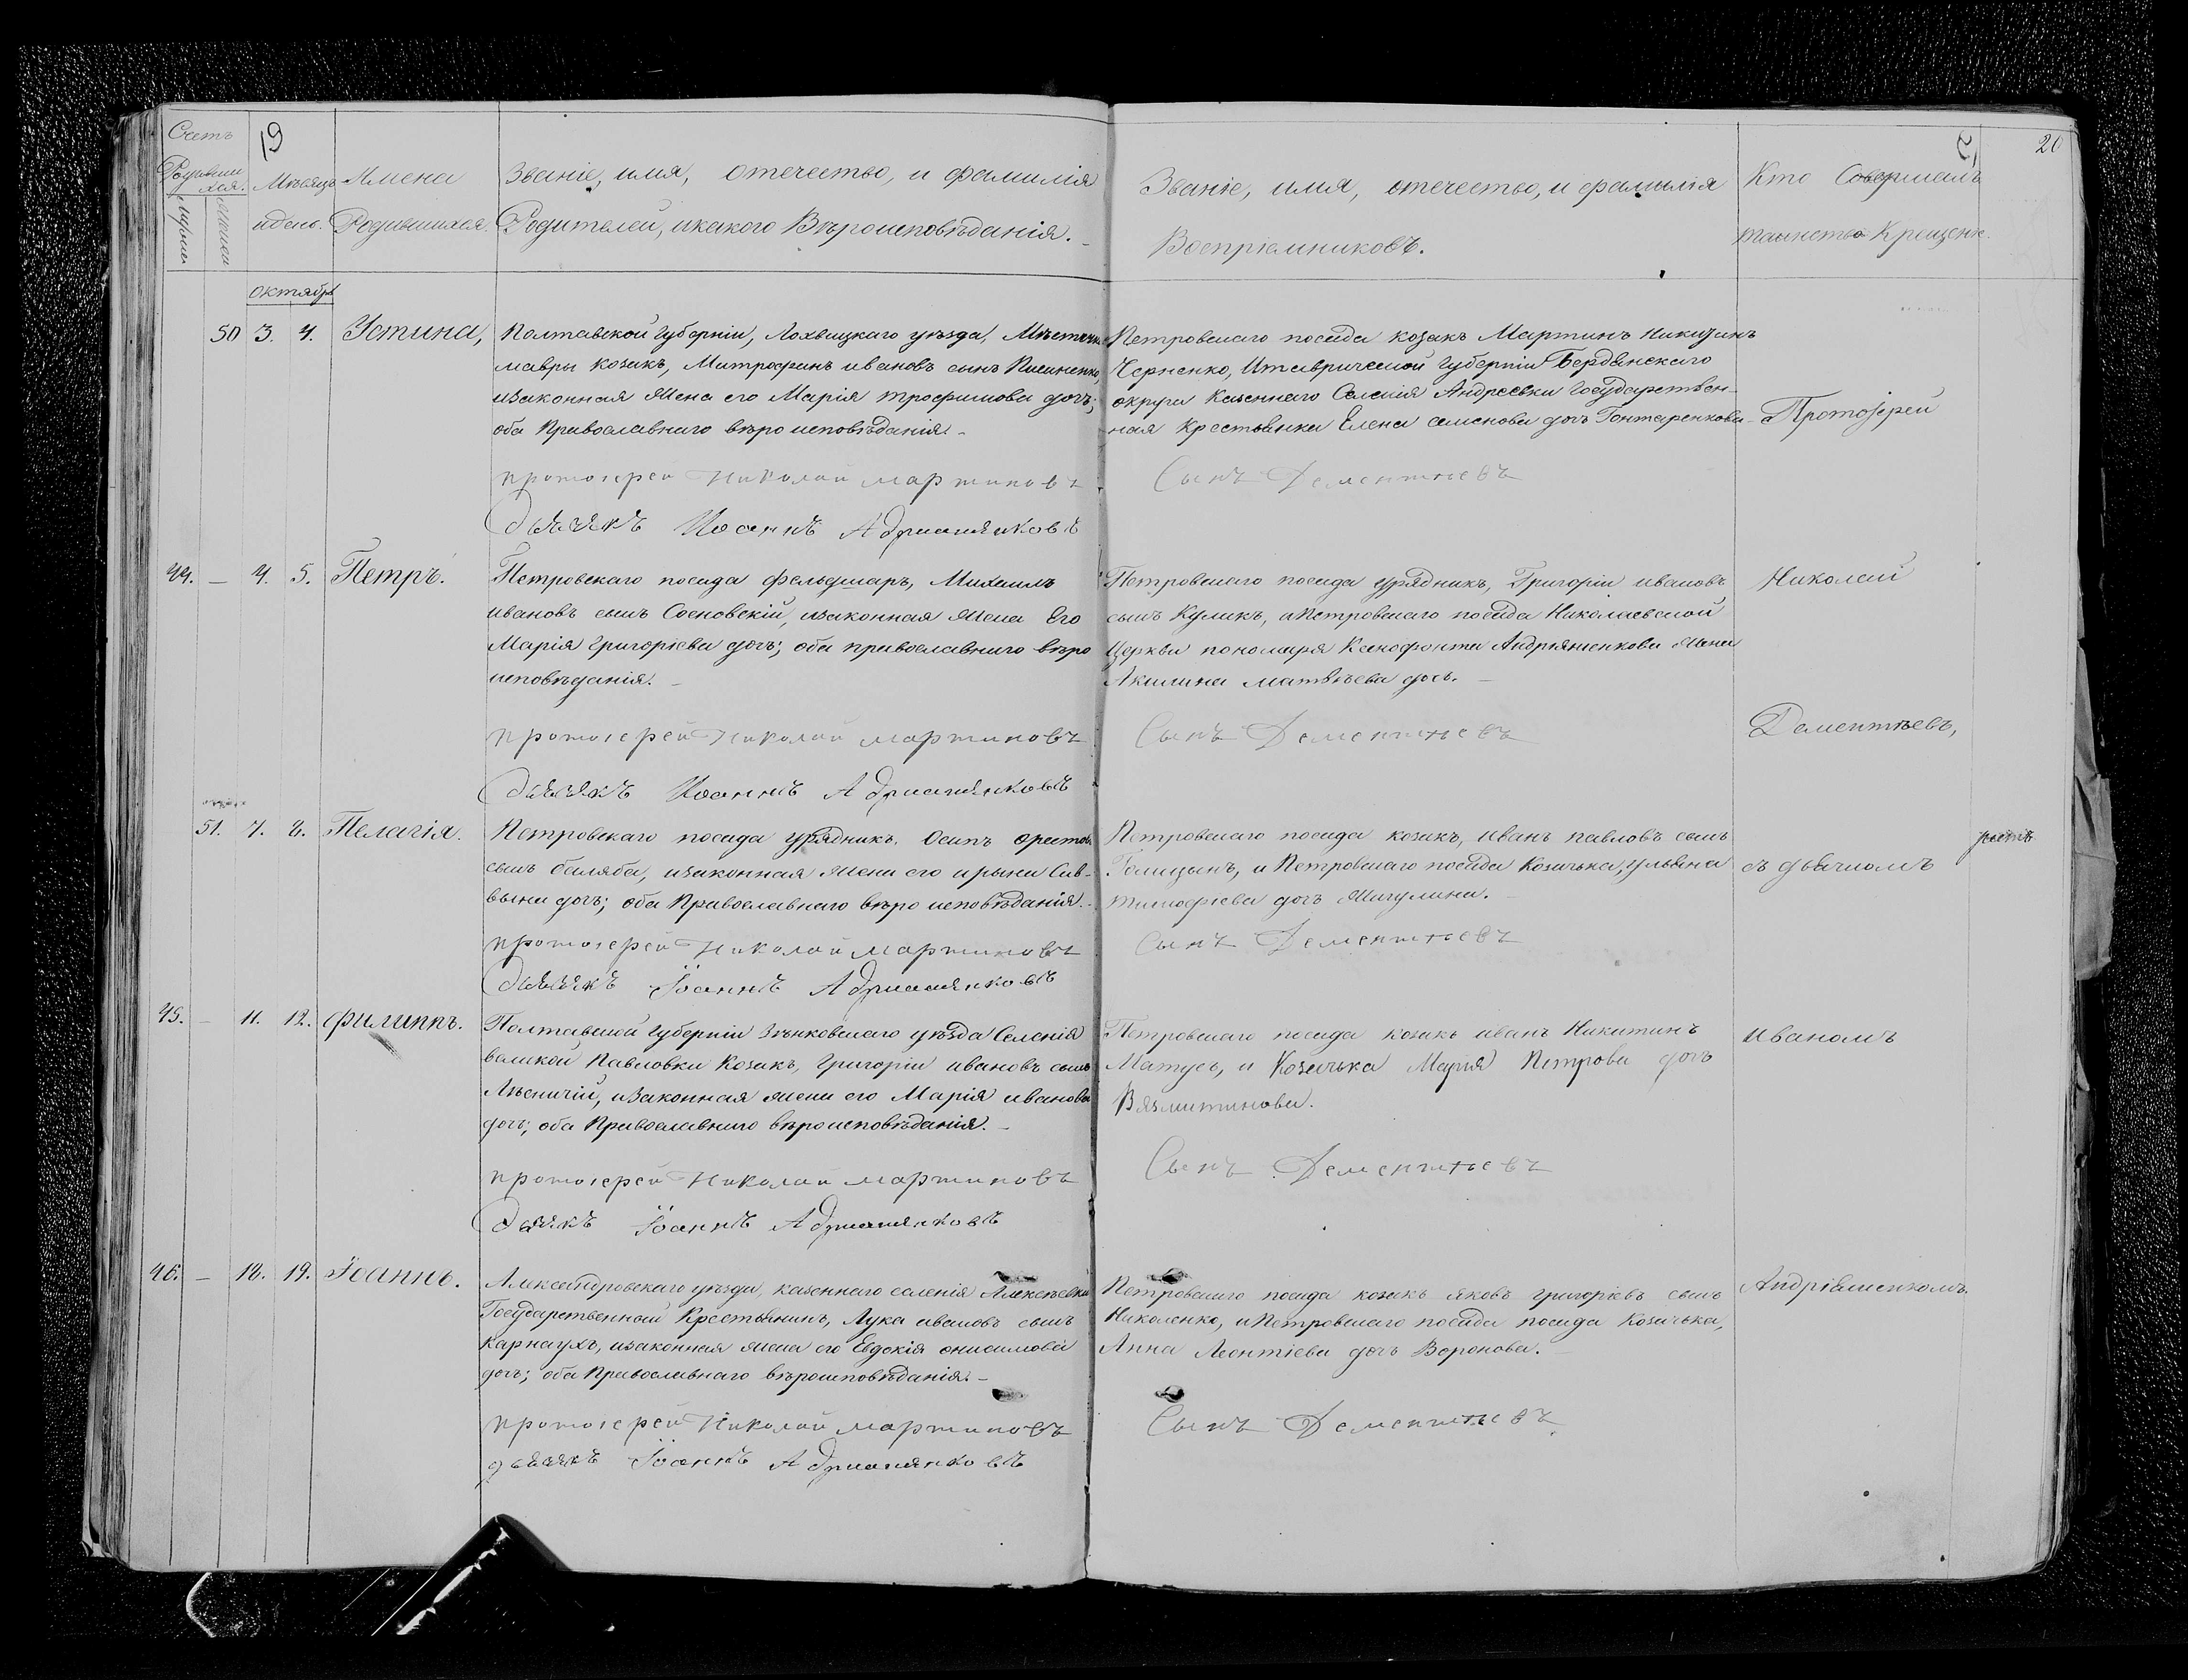 Счетъ
Родивши
хся.
Мужеска
Женска
19
Мѣсяцъ
и день.
Имена
Родившихся.
Званіе, имя, отечество, и фамилія
Родителей, и какого Вѣроисповѣданія.
Званіе, имя, отечество, и фамилія
Воспріемниковъ.
Кто Совершалъ
таинство Крещенія.
20
октябрь
50 3. 4. Устина,
Полтавской губерніи, Лохвицкаго уѣзда, Мѣстечка
лавры козакъ, Митрофанъ ивановъ сынъ
изаконная жена его Марія трофимова дочь;
оба Православнаго вѣро исповѣданія.
протоіерей Николай мартиновъ
дьячокъ Иоаннъ Адрияшенковъ
Петровскаго посада козакъ Мартинъ Никитинъ
Черненко, Итаврической губерніи Бердянскаго
округа Казеннаго Селенія Андреевки Государствен-
ная Крестьянка Елена семенова дочь Гонтаренкова
Сынъ Дементьевъ
Протоіерей
44. — 4. 5. Петръ.
Петровскаго посада фельдшаръ, Михаилъ
ивановъ сынъ Сосновскій, изаконная жена Его
Марія григоріева дочь; оба православнаго вѣро
исповѣданія.
протоіерей Николай мартиновъ
дьячокъ Иоаннъ Адрияшенковъ
Петровскаго посада урядникъ, Григорій ивановъ
сынъ Куликъ, иПетровскаго посада Николаевской
Церкви пономаря Ксенофонта Андріяшенкова жена
Акилина матвѣева дочь.
Сынъ Дементьевъ
Николай
Дементьевъ,
51. 7. 8. Пелагія.
Петровскаго посада урядникъ, Осипъ
сынъ баляба, изаконная жена его ирына Сав-
вына дочь; оба Православнаго вѣро исповѣданія.
протоіерей Николай мартиновъ
дьячокъ Іоаннъ Адрияшенковъ
Петровскаго посада козакъ, иванъ павловъ сынъ
Голицынъ, и Петровскаго посада Козачька, ульяна
тимофіева дочь Шигулина.
Сынъ Дементьевъ
съ дьячкомъ
45. — 11. 12. филиппъ.
Полтавской губерніи Зѣнковскаго уѣзда Селенія
великой Павловки Козакъ, григорій ивановъ сынъ
Лѣсничій, изаконная жена его Марія иванова
дочь; оба Православнаго вѣроисповѣданія.
протоіерей Николай мартиновъ
дьячокъ Іоаннъ Адрияшенковъ
Петровскаго посада козакъ иванъ Никитинъ
Матусъ, и Козачька Марія Петрова дочь
Вязмитинова.
Сынъ Дементьевъ
иваномъ
46. — 18. 19. Іоаннъ.
Александровскаго уѣзда, казеннаго селенія Алексѣевки
Государственный Крестьянинъ, Лука ивановъ сынъ
Карнаухъ, изаконная жена его Евдокія онисимова
дочь; оба Православнаго вѣроисповѣданія.
протоіерей Николай мартиновъ
дьячокъ Іоаннъ Адрияшенковъ
Петровскаго посада козакъ яковъ григорьевъ сынъ
Николенко, иПетровскаго посада посада Козачька,
Анна Леонтіева дочь Воронова.
Сынъ Дементьевъ
Андріяшенкомъ.